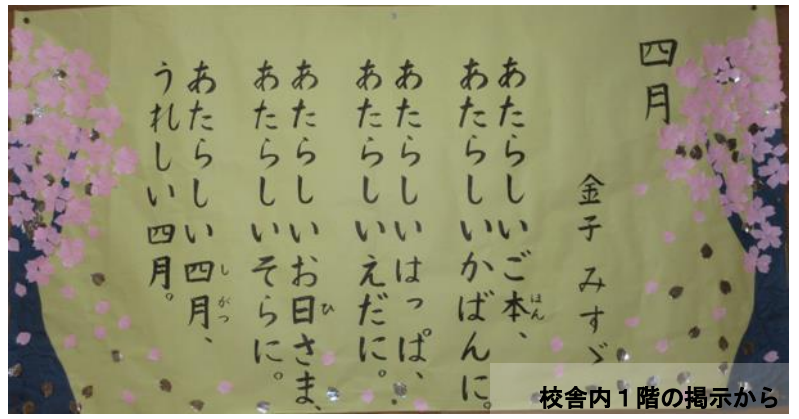 四月
金子 みすゞ
あたらしいご本、
あたらしいかばんに。
あたらしいはっぱ、
あたらしいえだに。
あたらしいお日さま、
あたらしいそらに。
あたらしい四月、
うれしい四月。
ほん
ひ
しがつ
校舎内1階の掲示から